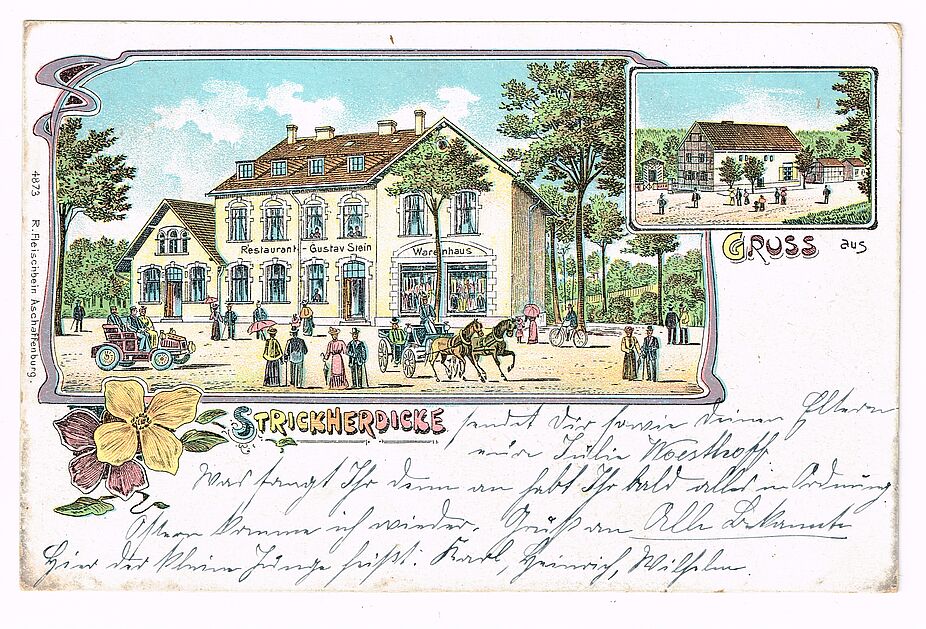 GRUSS aus
Restaurant - Gustav Stein
Warenhaus
4873 R. Fleischbein Aschaffenburg.
STRICKHERDICKE
sendet Dir sowie Deinen Eltern
eure Julie Westhoff
Was fangt Ihr denn an habt Ihr bald alles in Ordnung
Ostern komme ich wieder. Gruß an Alle Bekannte
Hier der kleine Junge heißt: Karl, Heinrich, Wilhelm.